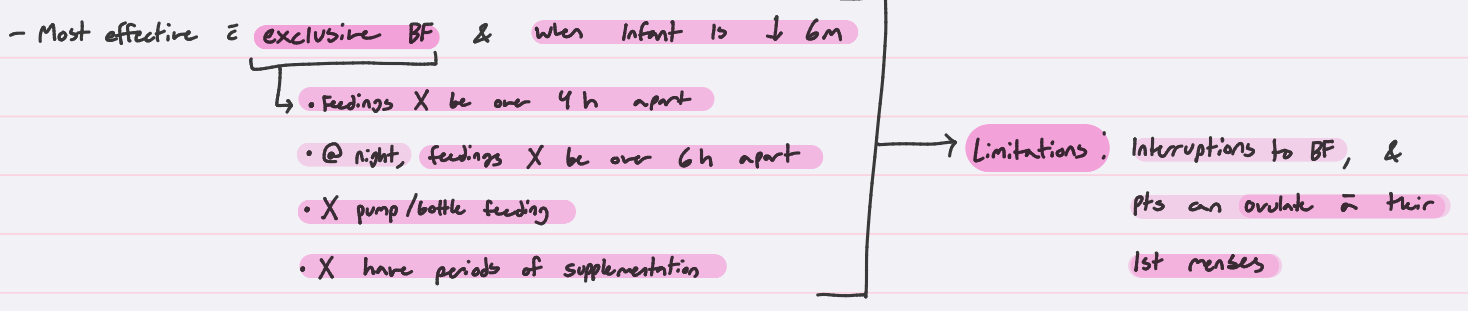 - Most effective c̄ exclusive BF & when infant is ↓ 6m
• Feedings X be over 4h apart
• @ night, feedings X be over 6h apart
• X pump/bottle feeding
• X have periods of supplementation
Limitations: Interruptions to BF, &
pts can ovulate ā their
1st menses